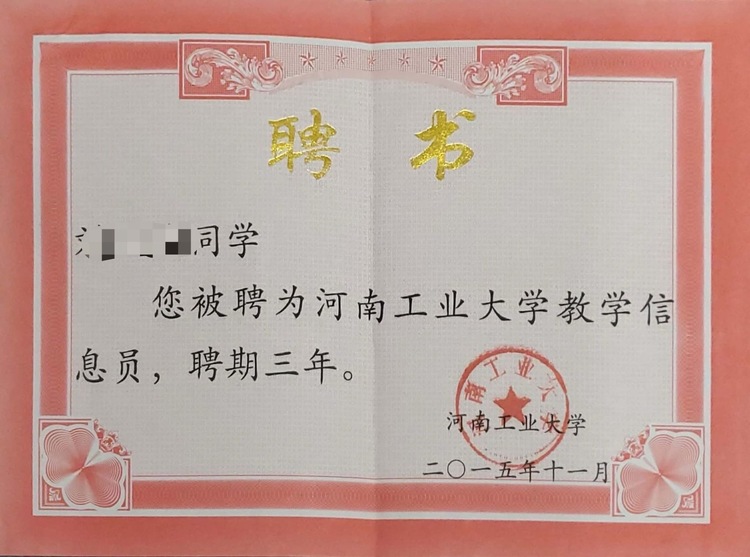 聘书
同学
您被聘为河南工业大学教学信
息员，聘期三年。
河南工业大学
河南工业大学
二〇一五年十一月